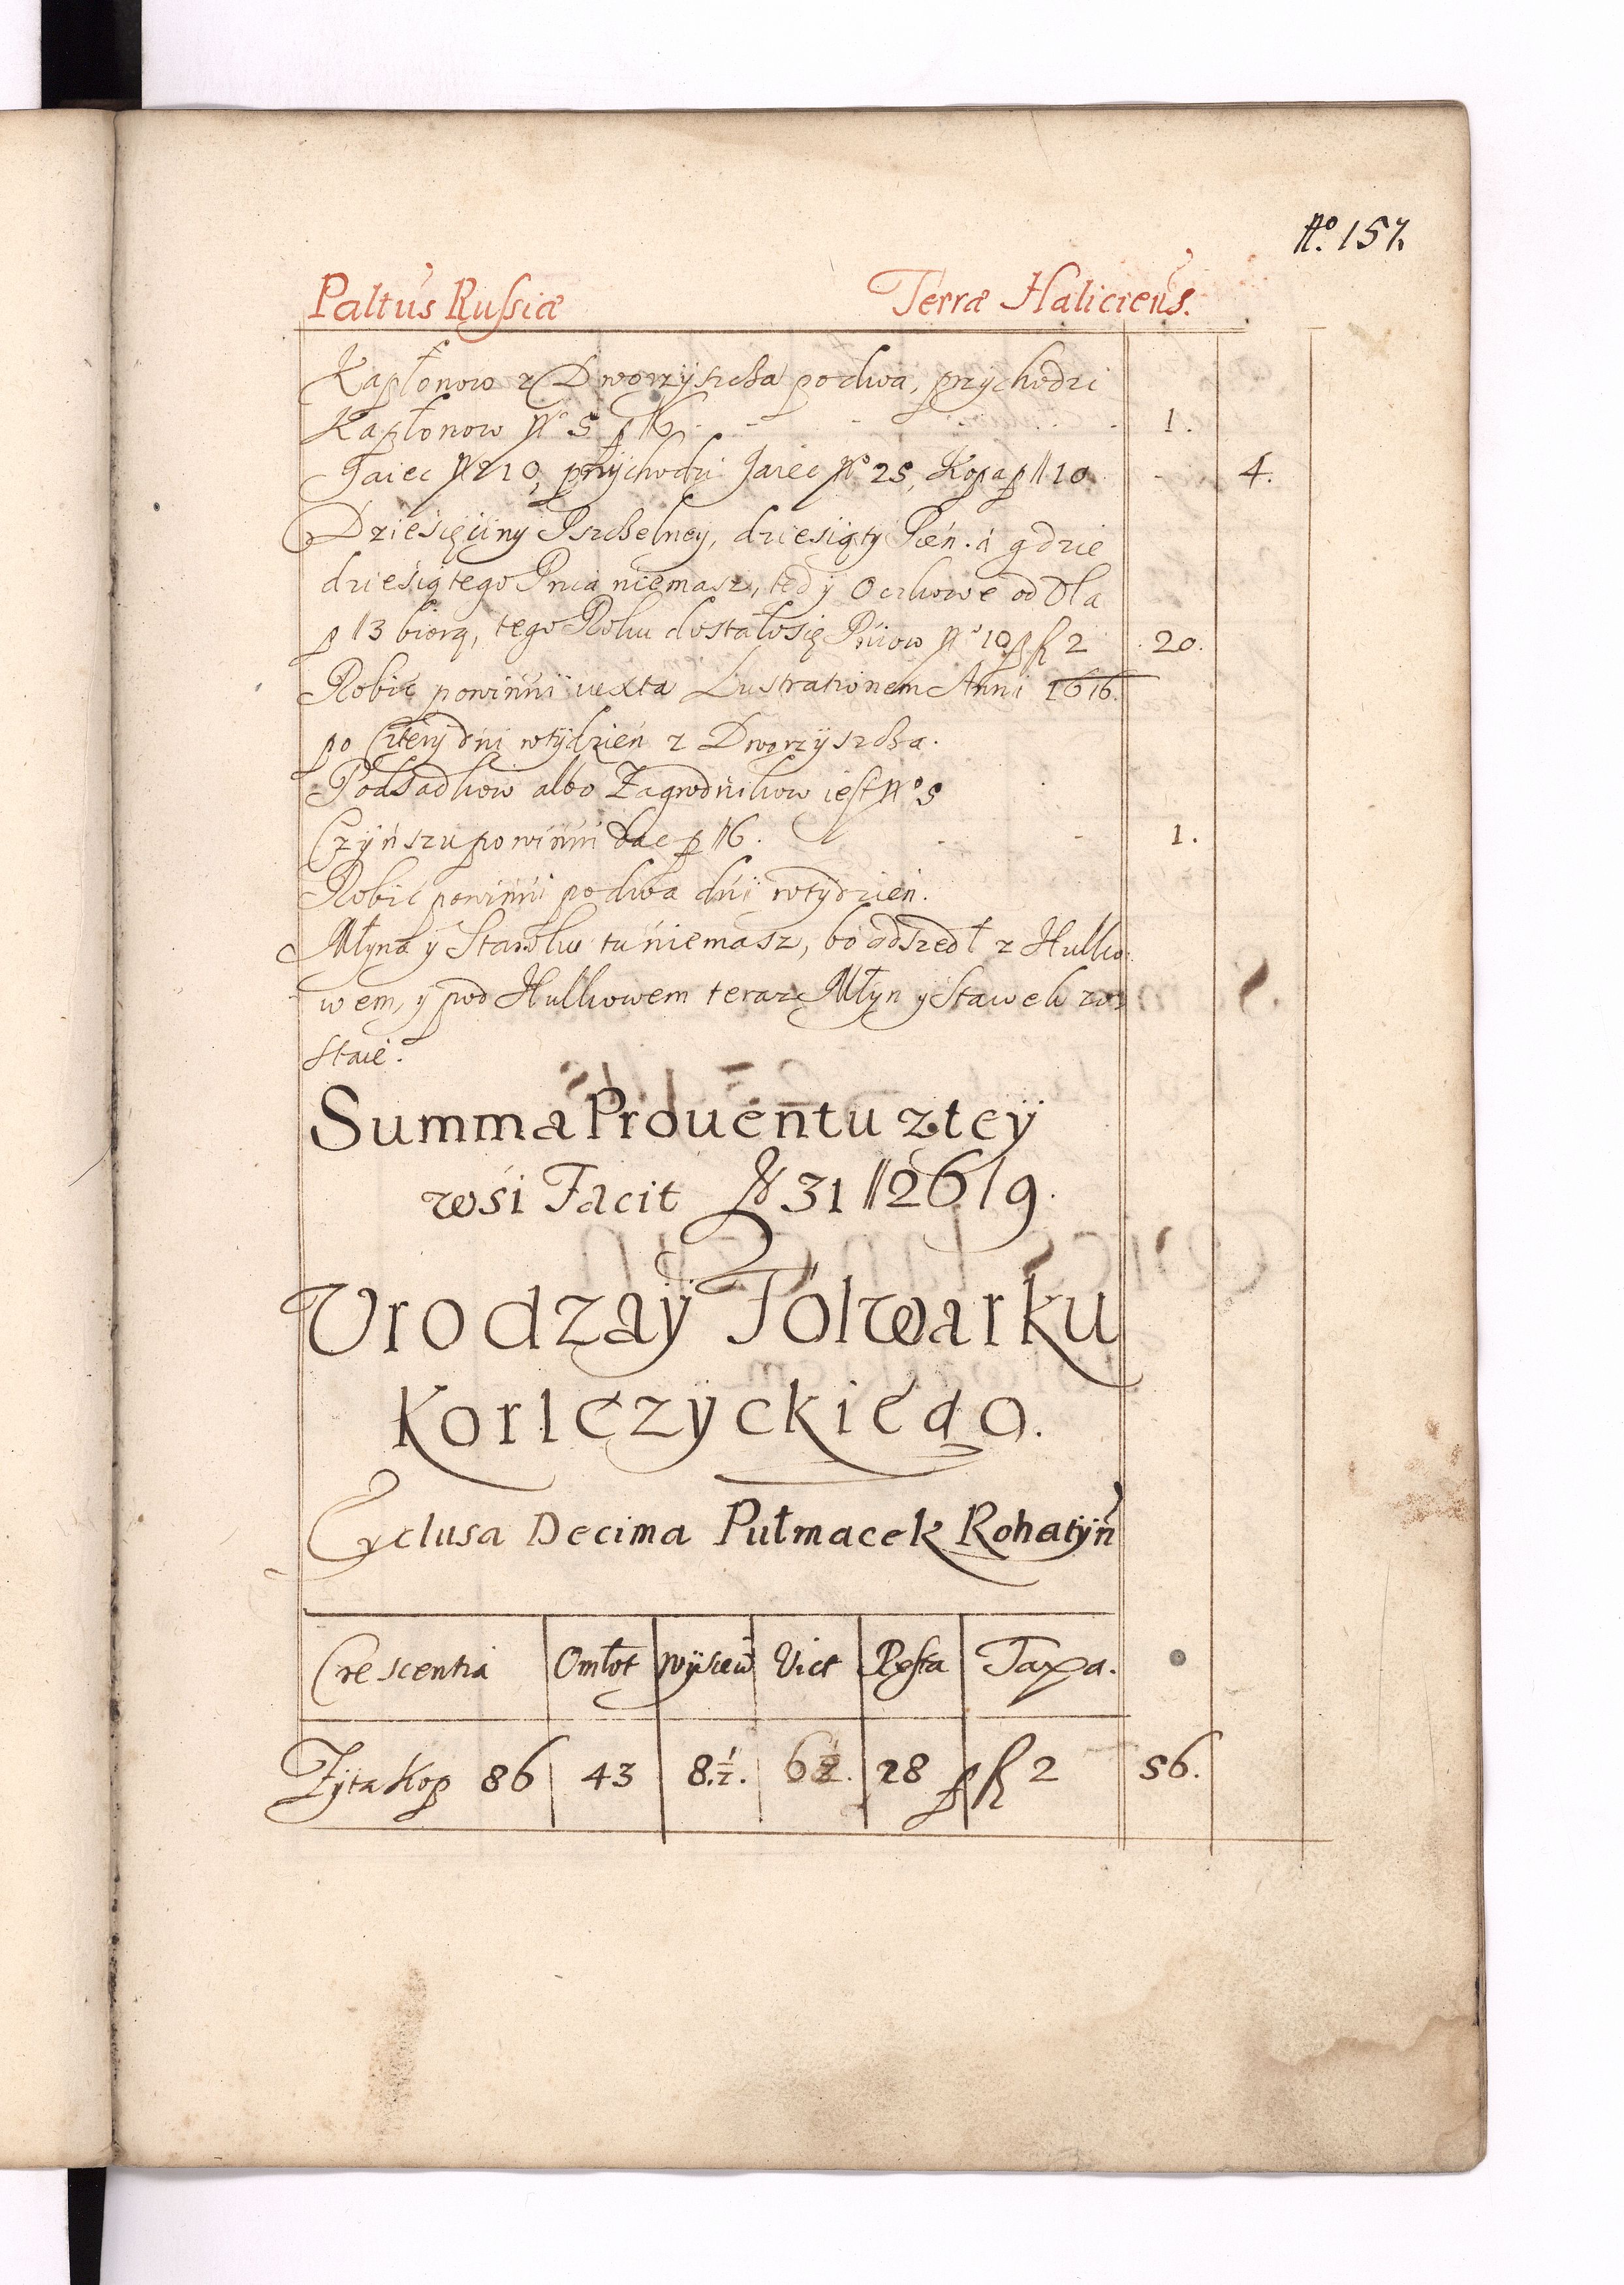 No. 157.
Paltus Russiæ Terræ Haliciens.
Kapłonow z Dworzyszcza po dwa, przychodzi
Kapłonow No 5 p // 6 - - - - 1.
Jaiec No 10, przychodzi Jaiec No 25, Kopa p // 10 - 4.
Dziesięciny Pszczelney, dziesiąty Pień. á gdzie
dziesiątego Pnia niemasz, tedy Oczkowe od Ula
p // 3 biorą, tego Roku dostałosię Pniow No 10 p fl 2 20.
Robić powinni iuxta Lustrationem Anni 1616.
po Cztery dni wtydzień z Dworzyszcza.
Podsadkow albo Zagrodnikow iest No 5
Czynszu powinni dac p // 6. - - 1.
Robić powinni po dwa dni wtydzień.
Młyna y Stawku tu niemasz, bo odszedł z Hulko
wem, y pod Hulkowem teraz Młyn y Stawek zo
staie.
Summa Prouentu z tey
wsi Facit fl 31 // 26 / 9.
Urodzay Folwarku
Korlczyckiego.
Exclusa Decima Pułmacek Rohatyn
Crescentia Omłot wysiew Vict Resta Taxa.
Zyta Kop 86 43 8 1/2. 28 p fl 2 56.